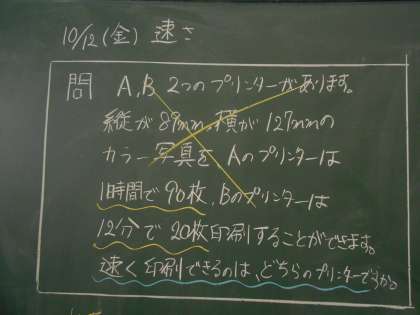 10/12(金) 速さ
問 A,B 2つのプリンターがあります。
縦が89mm,横が127mmの
カラー写真を Aのプリンターは
1時間で90枚,Bのプリンターは
12分で20枚印刷することができます。
速く印刷できるのは、どちらのプリンターですか。